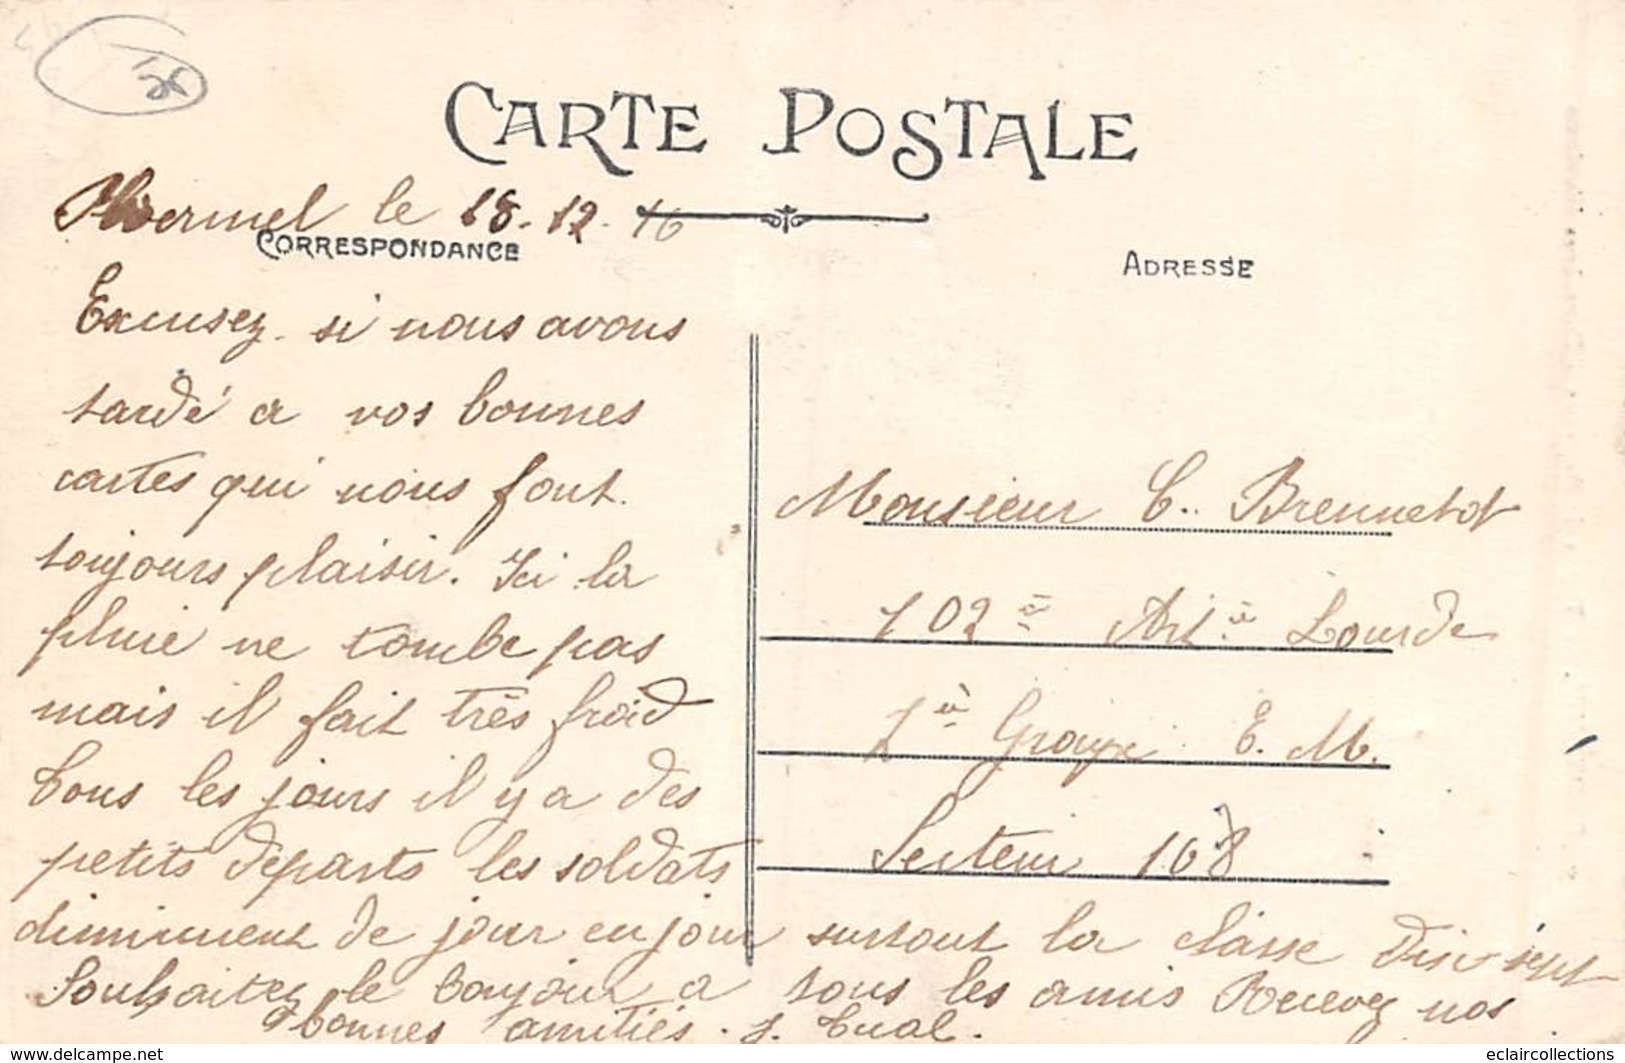 CARTE POSTALE
Ploermel le 18-12-16
CORRESPONDANCE
ADRESSE
Excusez si nous avons
tardé a vos bonnes
cartes qui nous font
toujours plaisir. Ici la
pluie ne tombe pas
mais il fait très froid
tous les jours il y a des
petits départs les soldats
diminuent de jour en jour surtout la classe dix sept
Souhaitez le bonjour a tous les amis Recevez nos
bonnes amitiés. J. Tual.
Monsieur C. Brennetot
102è Artie Lourde
1er Groupe E. M.
Secteur 108
eclaircollections
www.delcampe.net